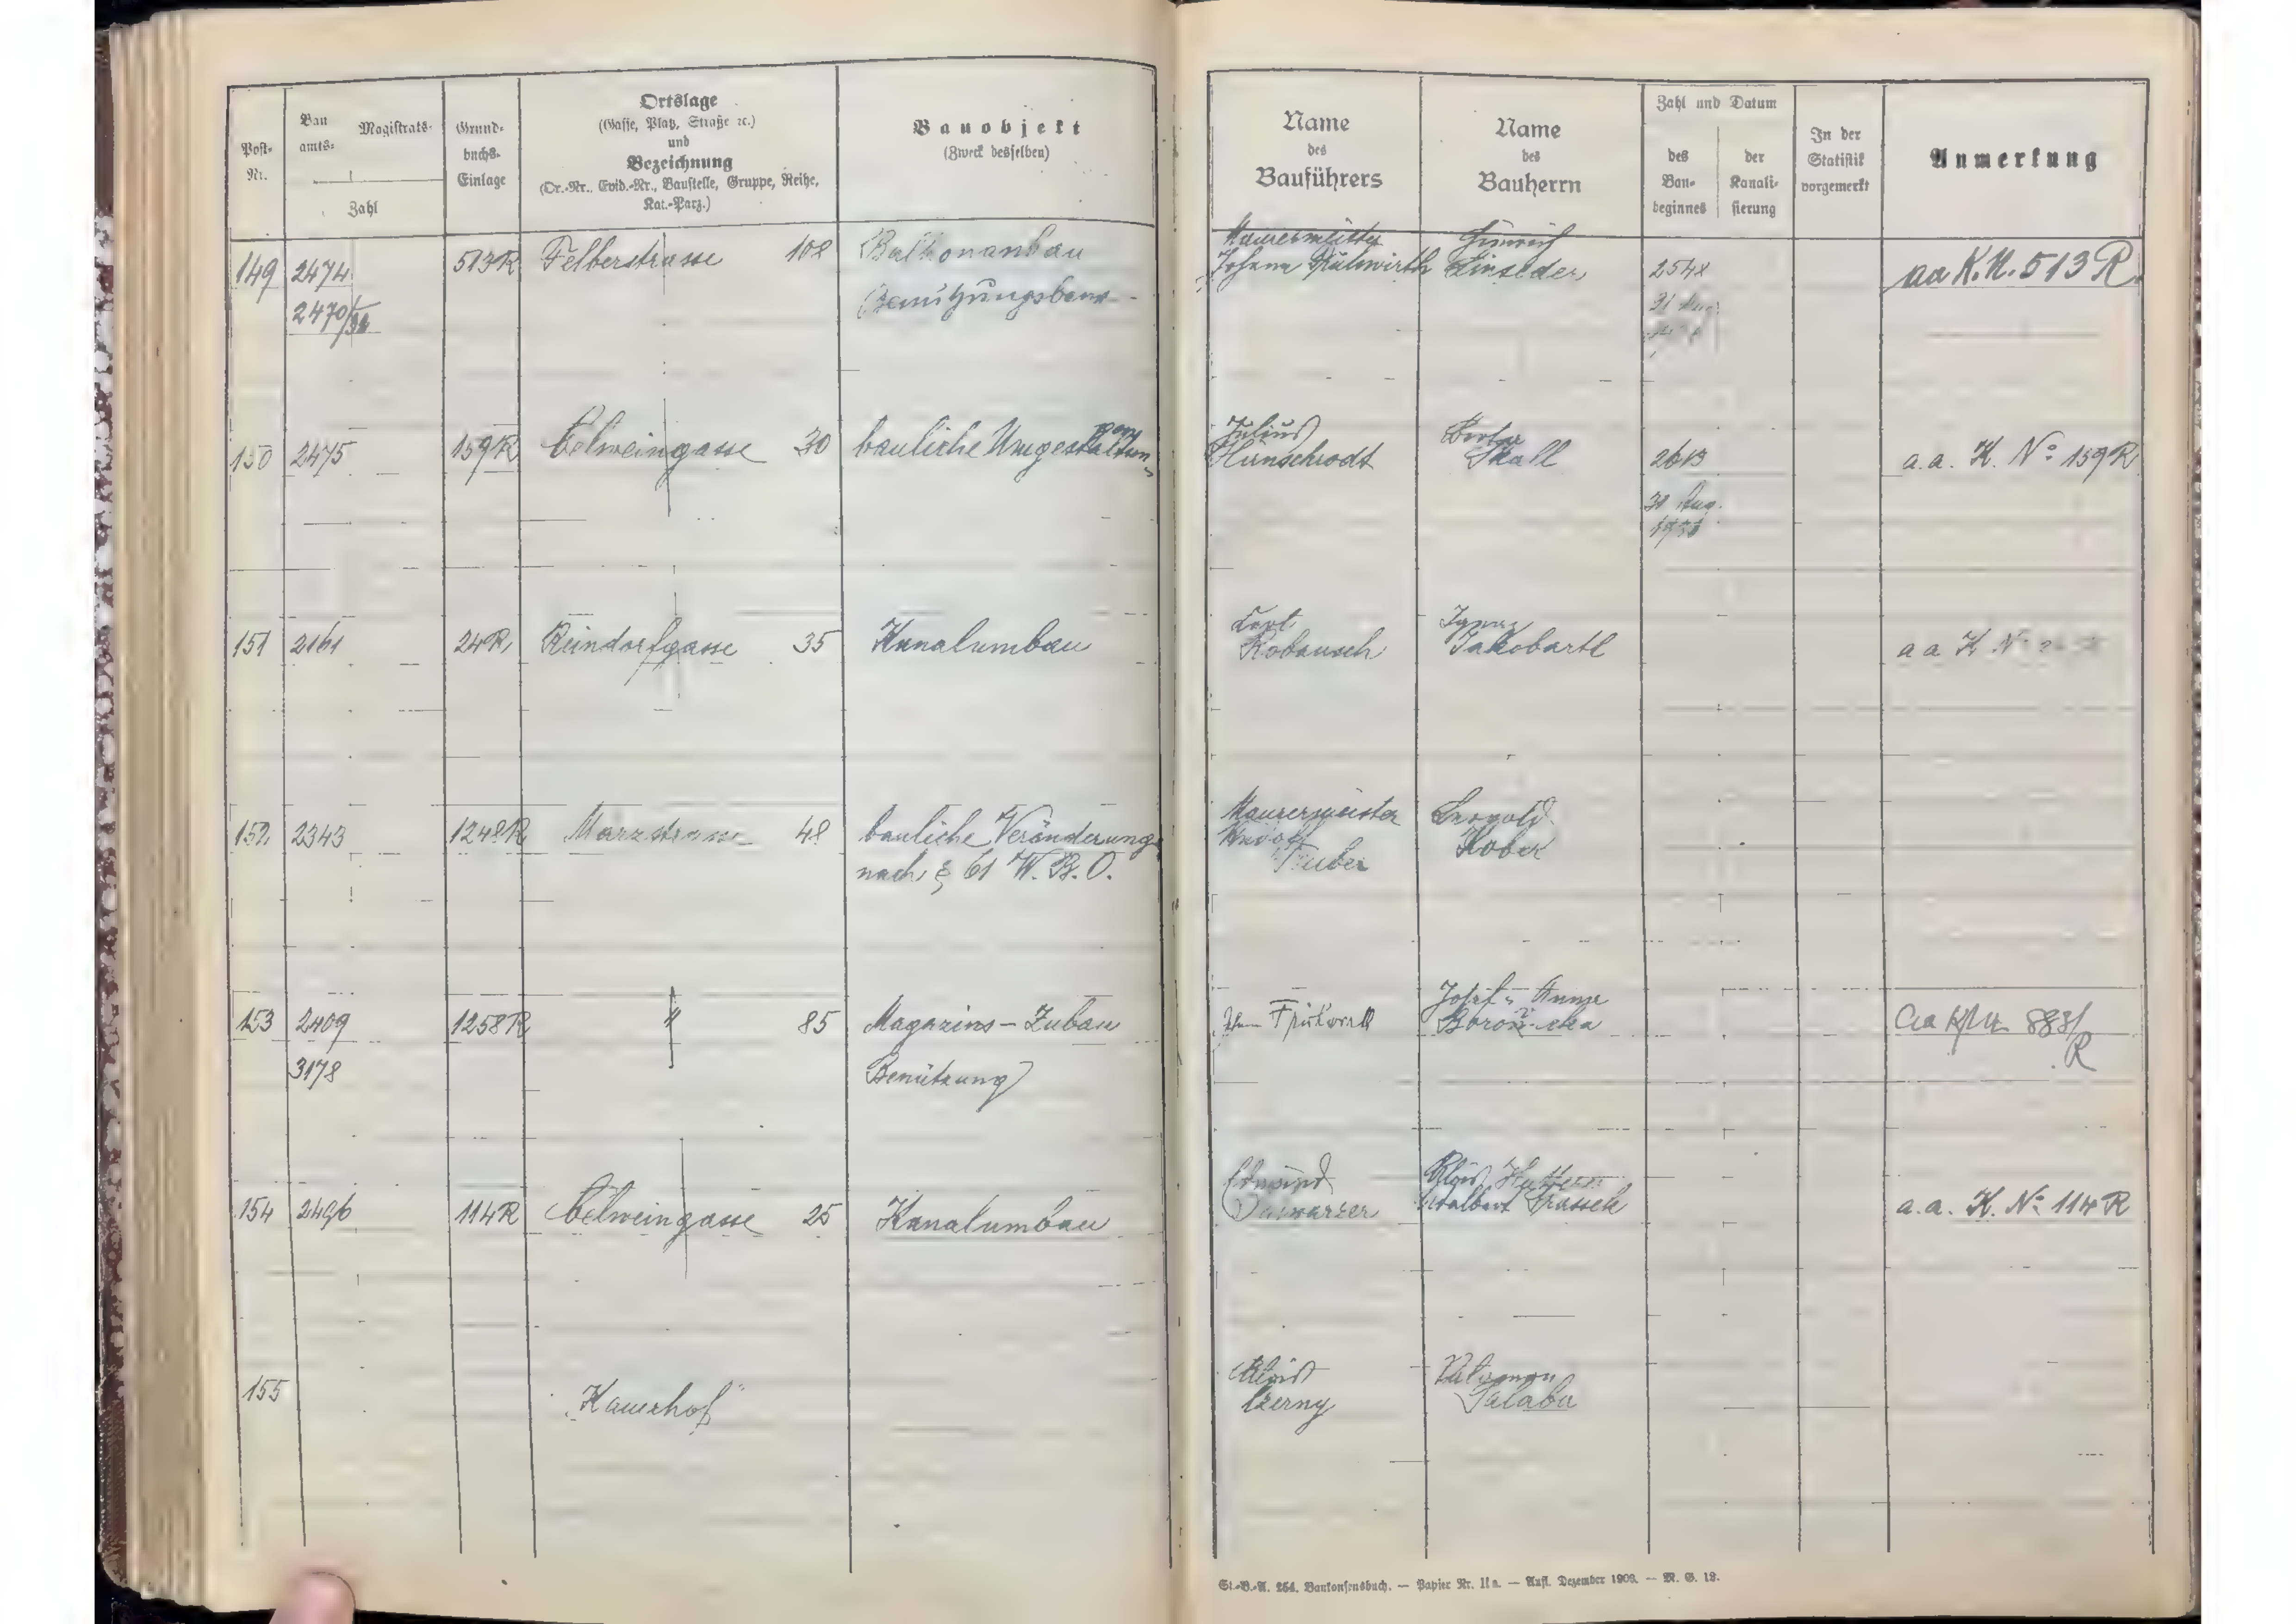 Post-
Nr.
Bau
amts-
Magistrats-
Zahl
Grund-
buchs-
Einlage
Ortslage
(Gasse, Platz, Straße ꝛc.)
und
Bezeichnung
(Or.-Nr., Evid.-Nr., Baustelle, Gruppe, Reihe,
Kat.-Parz.)
Bauobjekt
(Zweck desselben)
Name
des
Bauführers
Name
des
Bauherrn
Zahl und Datum
des
Bau-
beginnes
der
Kanali-
sierung
In der
Statistik
vorgemerkt
Anmerkung
149 2474 513R Felberstrasse 108 Balkonanbau
2470/
Maurermeister
Johann
Heinrich
Linseder
2548
31 Aug.
aa K.N. 513 R.
150 2475 159R Oelweingasse 30 bauliche Umgestaltung
Julius
Hirnschrodt
Skall
2613
30 Aug.
a.a. K. No 159R
151 2161 24R Reindorfgasse 35 Kanalumbau
Karl
Robausch
Ignaz
Jakobartl
a a K No
152 2343 1248R Märzstrasse 48 bauliche Veränderung
nach § 61 W.B.O.
Maurermeister
Leopold
Kober
153 2409 1258R " 85 Magazins-Zubau
3178 Benützung
Josef u Anna
888/
R
154 2496 114R Oelweingasse 25 Kanalumbau
Edmund
Alois
Adalbert
a.a. K. No 114R
155 „Kauerhof"
Alois
Czerny
Salaba
St.-B.-A. 254. Baukonsensbuch. — Papier Nr. II a. — Aufl. Dezember 1908. — M. G. 12.